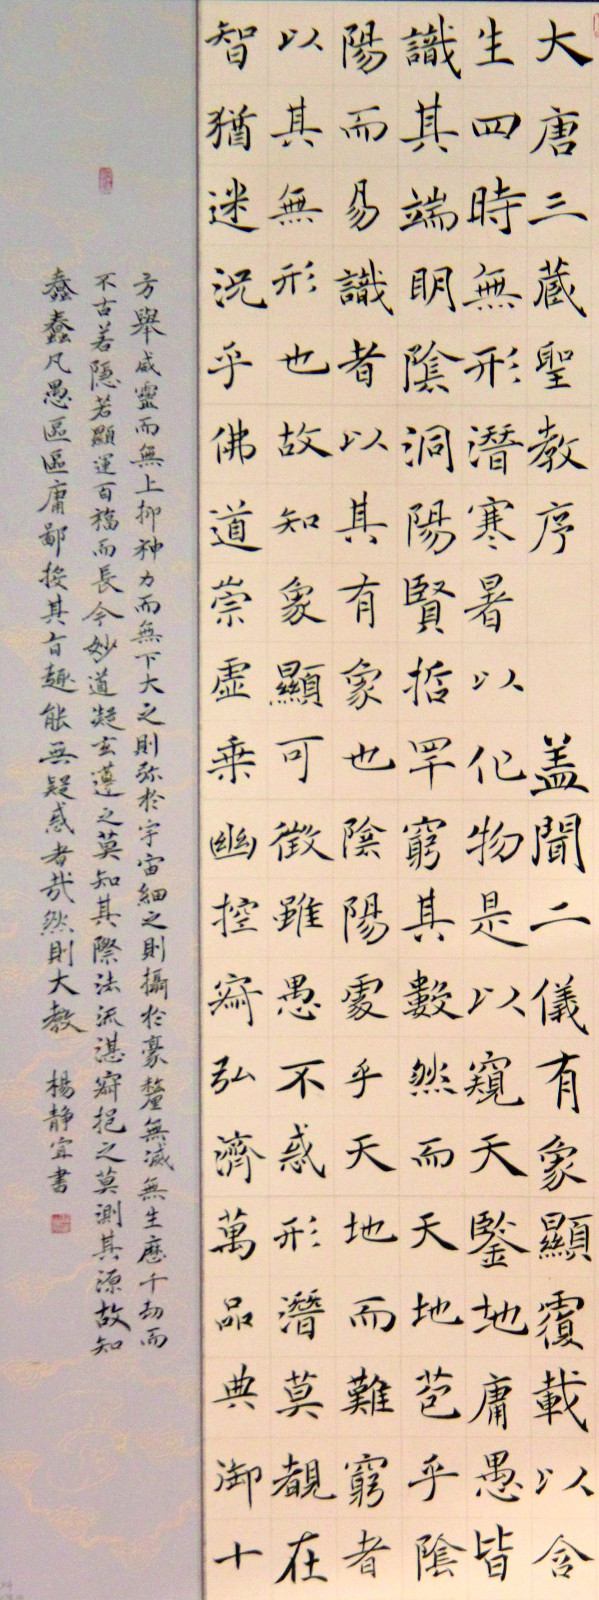 大唐三藏聖教序 盖聞二儀有象顯覆載以含
生四時無形潛寒暑以化物是以窺天鑒地庸愚皆
識其端明陰洞陽賢哲罕窮其數然而天地苞乎陰
陽而易識者以其有象也陰陽處乎天地而難窮者
以其無形也故知象顯可徵雖愚不惑形潛莫覩在
智猶迷況乎佛道崇虛乗幽控寂弘濟萬品典御十
方舉威靈而無上抑神力而無下大之則弥於宇宙細之則攝於豪釐無滅無生歷千劫而
不古若隱若顯運百福而長今妙道凝玄遵之莫知其際法流湛寂挹之莫測其源故知
蠢蠢凡愚區區庸鄙投其旨趣能無疑惑者哉然則大教 楊靜宜書